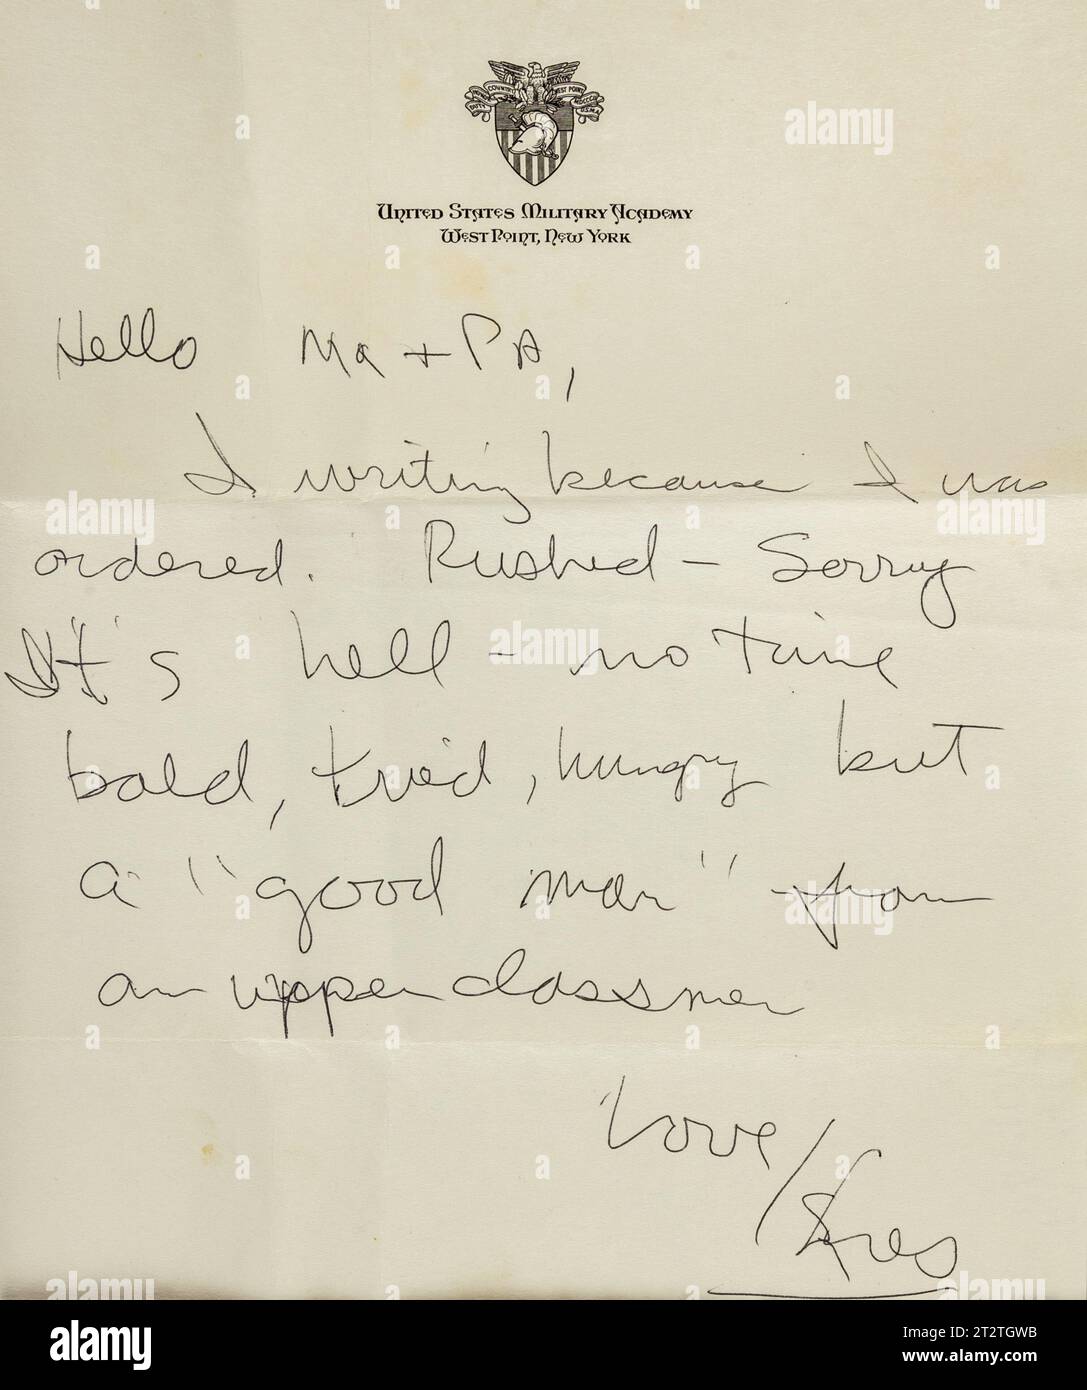 DUTY HONOR COUNTRY WEST POINT MDCCCII U.S.M.A.
UNITED STATES MILITARY ACADEMY
WEST POINT, NEW YORK
Hello Ma + PA,
I writing because I was
ordered. Rushed – Sorry
It's hell – no time
bald, tried, hungry but
a "good man" from
an upperclassmen
Love/
Kres
alamy
a
Image ID: 2T2TGWB
www.alamy.com